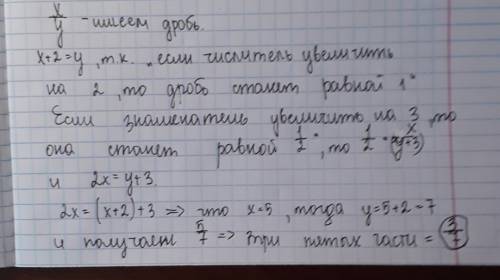 x/y - имеем дробь.
x+2=y, т.к. „если числитель увеличить
на 2, то дробь станет равной 1"
Если знаменатель увеличить на 3, то
она станет равной 1/2", то 1/2 = x/(y+3)
и 2x=y+3.
2x=(x+2)+3 => что x=5, тогда y=5+2=7
и получаем 5/7 => три пятых части = 3/7